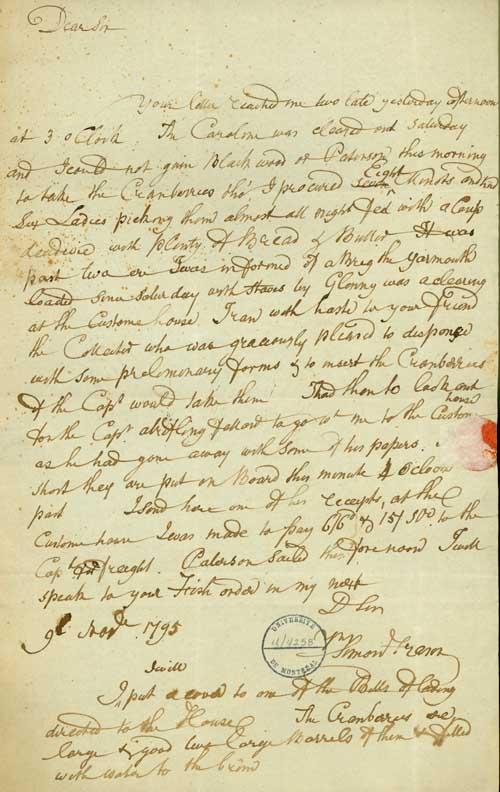 Dear Sir
Your letter reached me two late yesterday afternoon
at 3 oClock The Caroline was cleared out Saturday
and I could not gain Blackwood or Paterson this morning
to take the Cranberries tho' I procured Eight Minots and had
Six Ladies picking them almost all night fed with a Coup
with plenty of Bread & Butter It was
past two ere I was informed of a Brig the Yarmouth
loaded since Saturday with Staves by Glenny was a clearing
at the Custome house I ran with haste to your friend
the Collector who was graciously pleased to dispense
with some preliminary forms & to insert the Cranberries
if the Capt would take them I had then to look out
for the Capt a trifling fellow to go wt me to the Custom house
as he had gone away with some of his papers. In
short they are put on Board this minute 4 oClock
past I send here one of his receipts, at the
Custome house I was made to pay 6/6d & 15/ Stg to the
Capt for freight. Paterson Sailed this forenoon I will
speak to your Fish order in my next
D Sir
9th Novr 1795
UNIVERSITÉ DE MONTRÉAL
Simon Fraser
I will
I put a cover to one of the Bills of lading
directed to the House The Cranbaries are
large & good two large Barrels of them & filled
with water to the brim